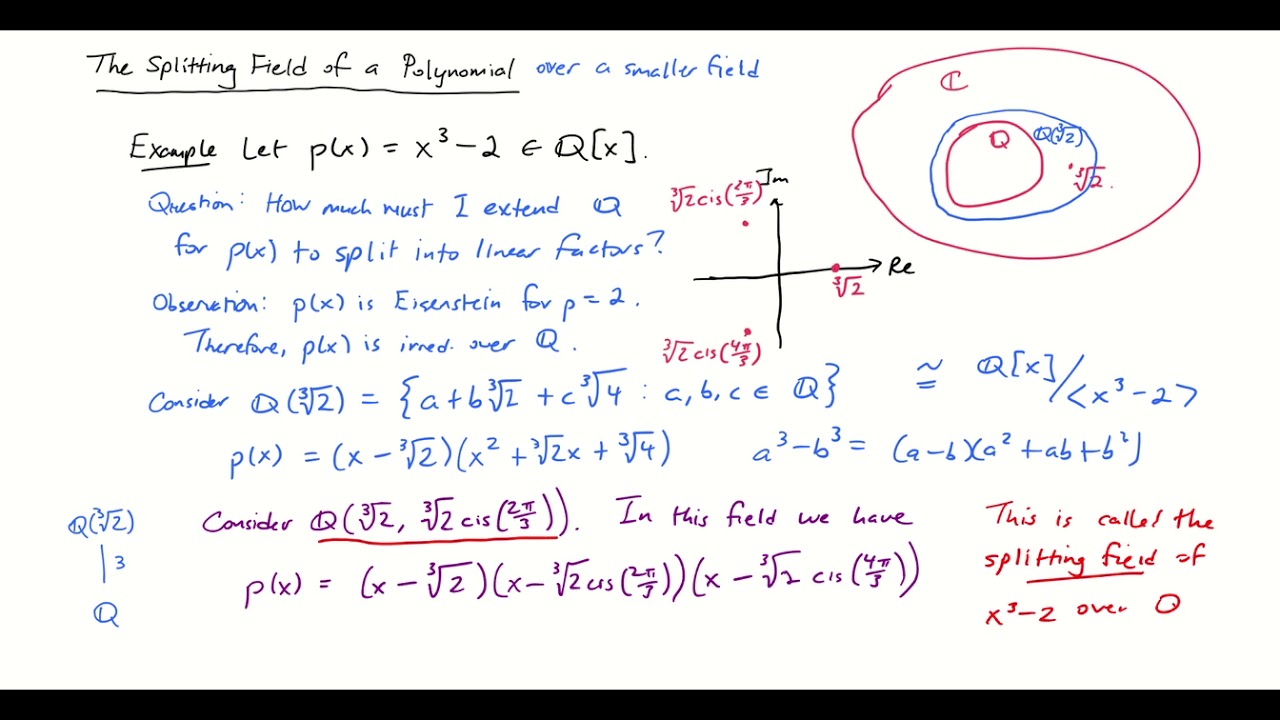 The Splitting Field of a Polynomial over a smaller field
ℂ
ℚ
ℚ(∛2)
∛2.
Example Let p(x) = x³ − 2 ∈ ℚ[x].
Question: How much must I extend ℚ
for p(x) to split into linear factors?
Observation: p(x) is Eisenstein for p = 2.
Therefore, p(x) is irred. over ℚ.
Im
∛2 cis(2π/3)
Re
∛2
∛2 cis(4π/3)
Consider ℚ(∛2) = {a + b∛2 + c∛4 : a, b, c ∈ ℚ} ≅ ℚ[x]/<x³ − 2>
p(x) = (x − ∛2)(x² + ∛2x + ∛4) a³ − b³ = (a−b)(a² + ab + b²)
ℚ(∛2)
3
ℚ
Consider ℚ(∛2, ∛2 cis(2π/3)). In this field we have
p(x) = (x − ∛2)(x − ∛2 cis(2π/3))(x − ∛2 cis(4π/3))
This is called the
splitting field of
x³−2 over ℚ